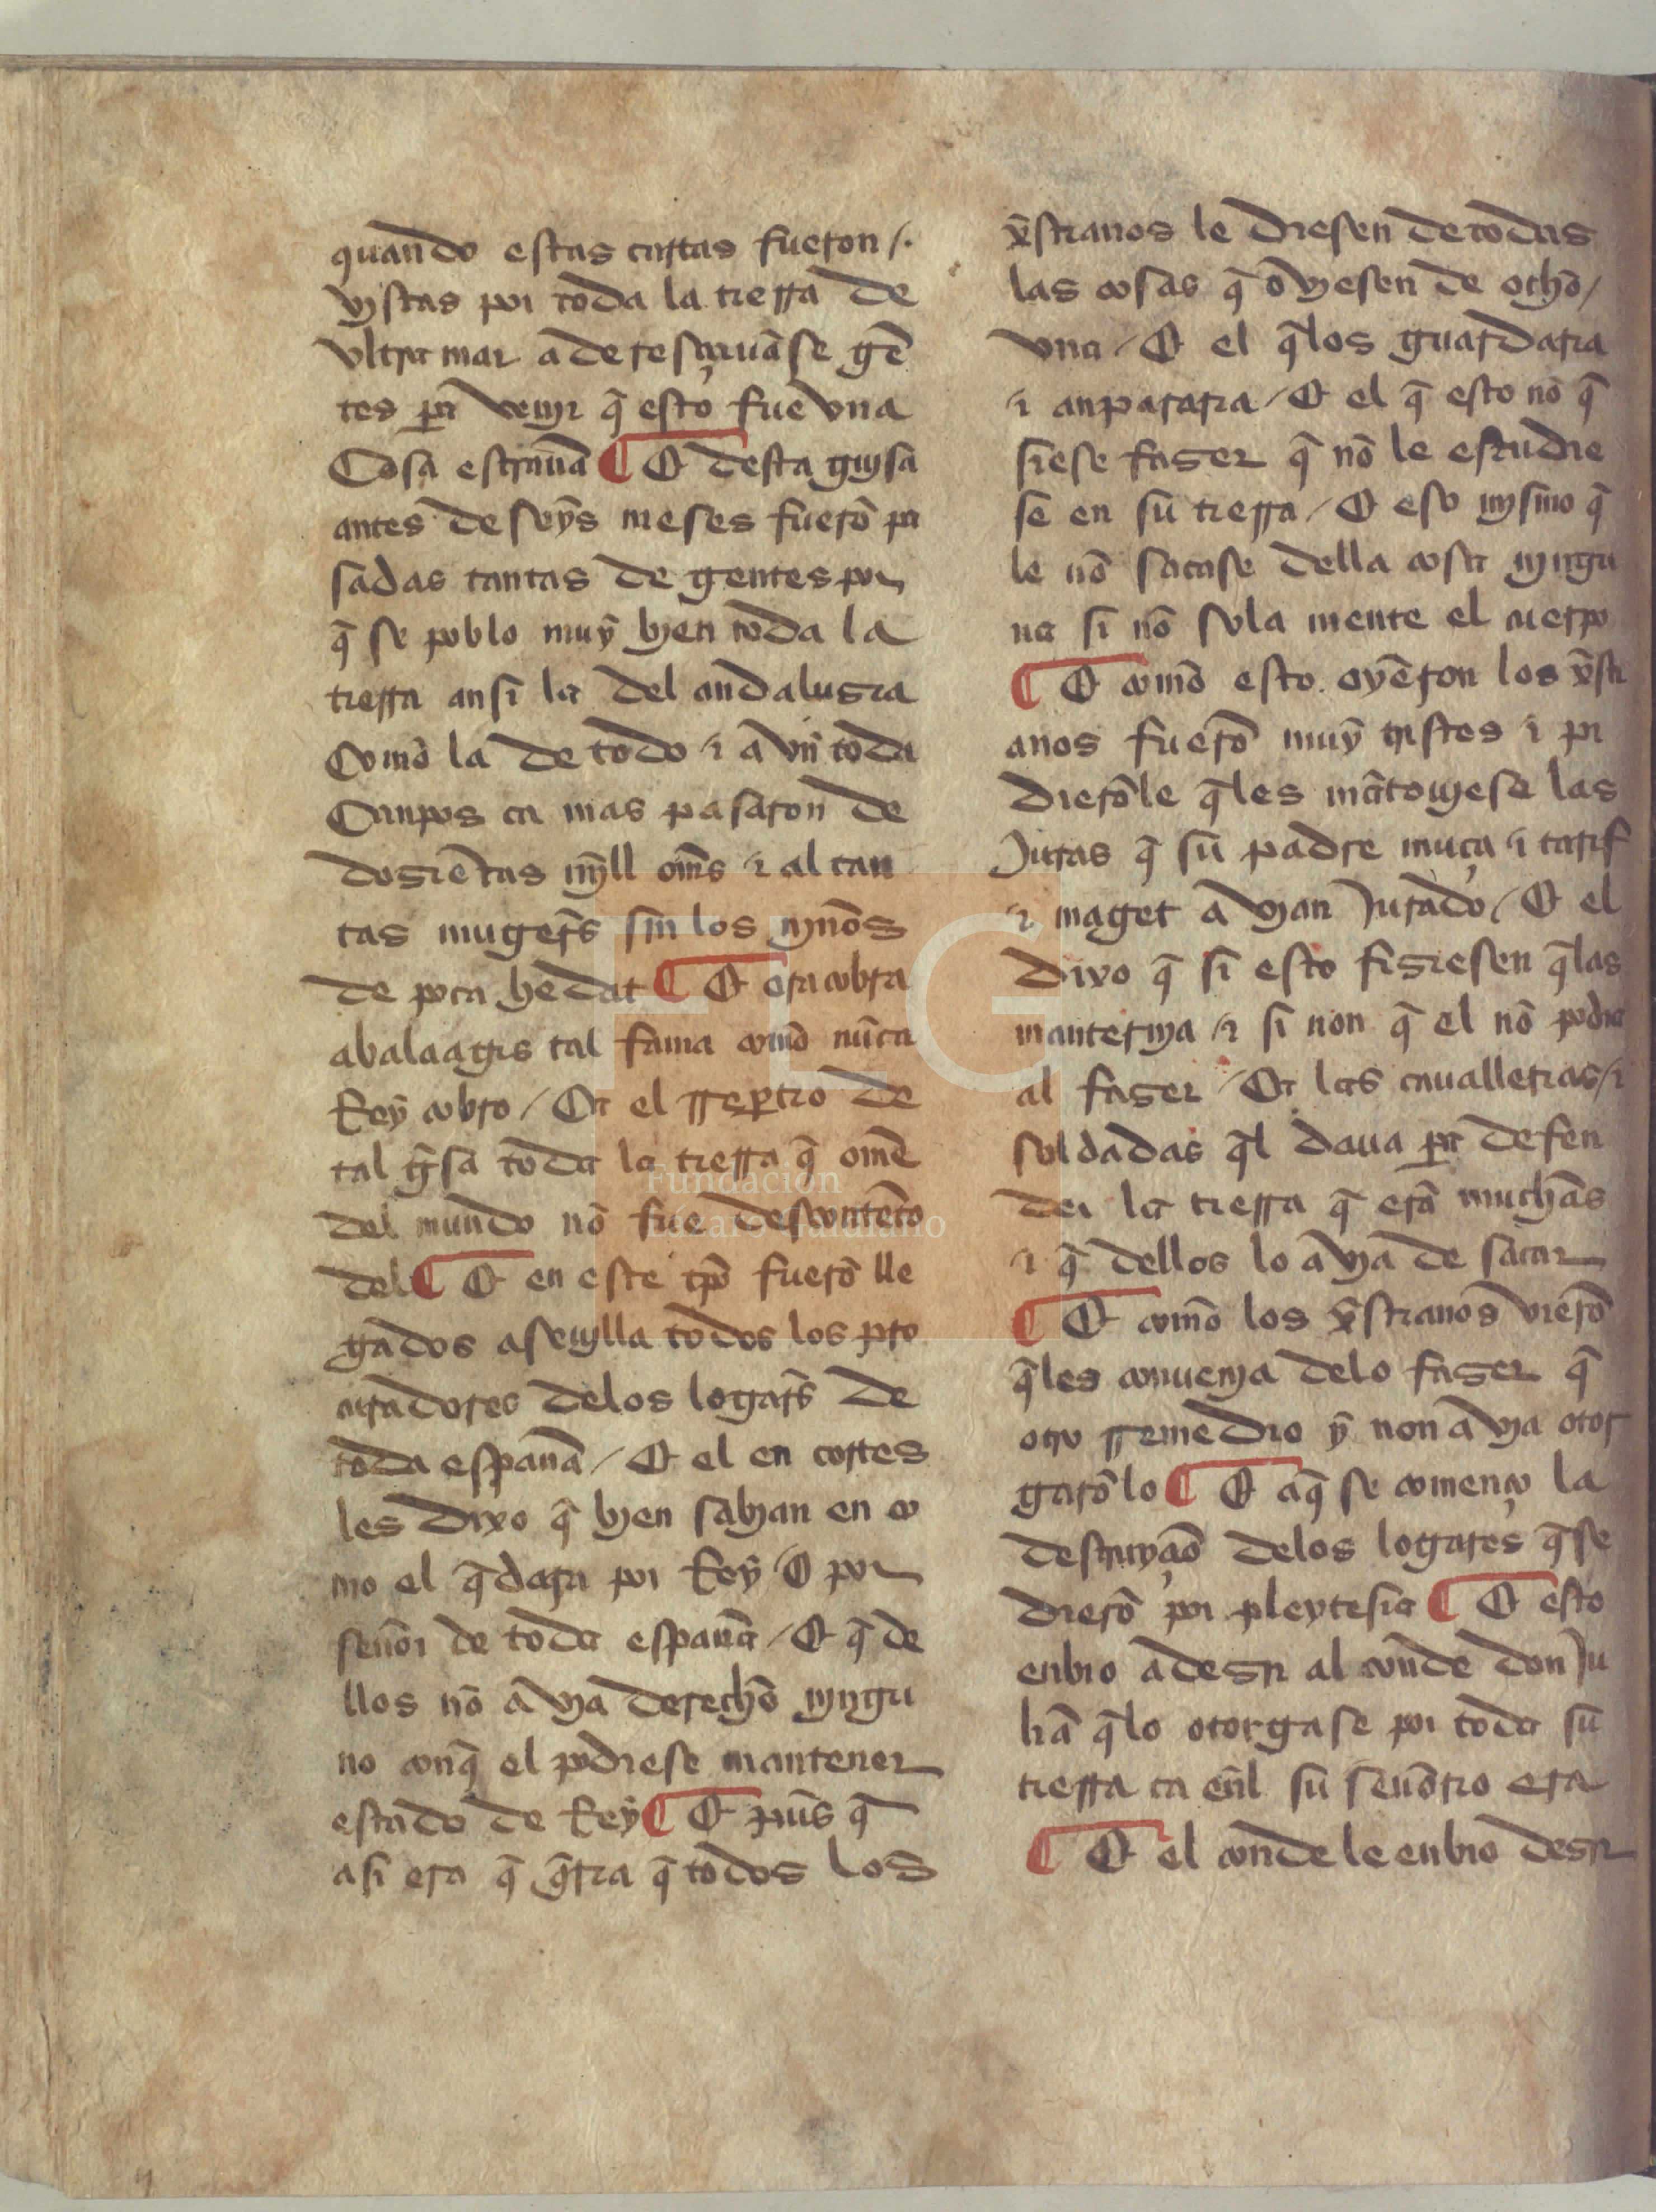 quando estas cartas fueron /.
vystas por toda la tierra de
vltra mar aderescaruā se gē
tes pa venjr q̄ esto fue vna
Cosa estraña ¶ E desta gujsa
antes de seys meses fuerō pa
sadas tantas de gentes por
q̄ se poblo muy bjen toda la
tierra ansi la del andalusia
Como la de todo & avn toda
Canpos ca mas pasaron de
dosiētas mjll oms̄ & al tan
tas mugers̄ sin los njños
de poca hedat ¶ E era cobra
abalaagis tal fama como nūca
Rey cobro / Ca el rrepartio de
tal gisa toda la tierra q̄ ome
del mundo nō fue descontēto
del ¶ E en este tpō fuerō lle
gados a seujlla todos los pro
curadores delos logars̄ de
toda españa / E el en cortes
les dixo q̄ bjen sabjan en co
mo el q̄dara por Rey E por
señor de toda españa / E q̄ de
llos nō avya derecho njngu
no conq̄ el podiese mantener
estado de Rey ¶ E pues q̄
asi era q̄ q̄ria q̄ todos los
xp̄stianos le diesen de todas
las cosas q̄ ovyesen de ocho /
vna / E el q̄los guardaria
& anpararia / E el q̄ esto nō q̄
siese faser q̄ nō le estudie
se en su tierra / E eso mjsmo q̄
le nō sacase della cosa njngu
na si nō sola mente el cuerpo
¶ E como esto oyeron los xp̄sti
anos fuerō muy tristes & pi
dierōle q̄les mātoujese las
Juras q̄ su padre muça & tarif
& maget avyan Jurado / E el
dixo q̄ si esto fisiesen q̄las
manternja & si non q̄ el nō podia
al faser / Ca las cauallerias / &
soldadas q̄l daua pa defen
der la tierra q̄ erā muchas
& q̄ dellos lo avya de sacar
¶ E como los xp̄stianos vierō
q̄les conuenja delo faser q̄
otro rremedio y non avya otor
garōlo ¶ E aq̄ se començo la
destruyçiō delos logares q̄se
dierō por pleytesia ¶ E esto
enbio a desir al conde don Ju
liā q̄lo otorgase por toda su
tierra ca enl su señorio era
¶ E el conde le enbio desir
FLG
Fundación
Lázaro Galdiano